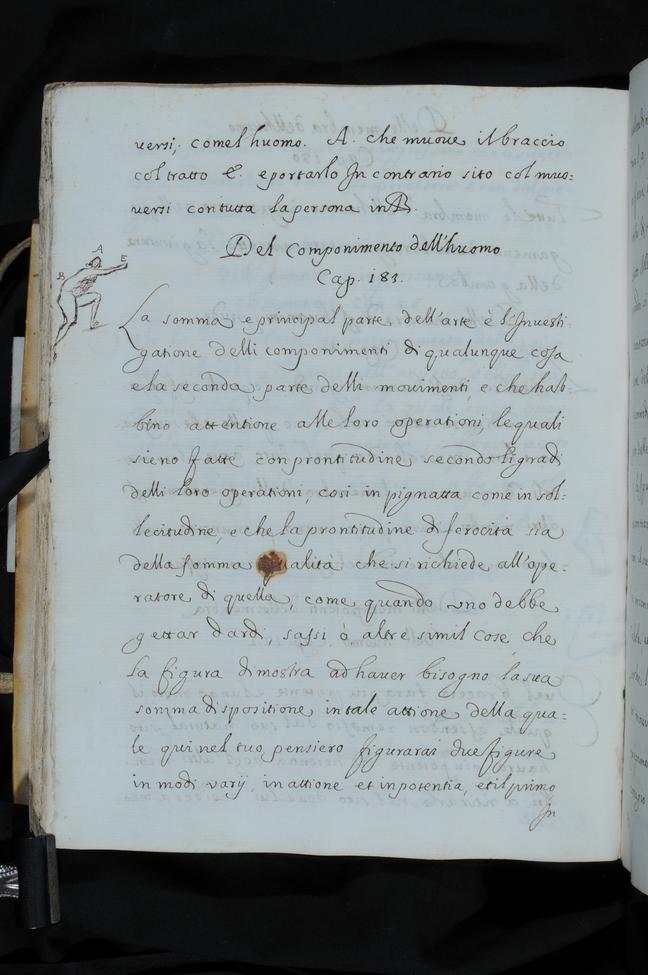 versi, come l'huomo. A. che muove il braccio
col tratto E. e portarlo In contrario sito col muo=
versi con tutta la persona in B.
Del Componimento dell'huomo
Cap. 183.
A
E
B
La somma e principal parte dell'arte è l'Investi
gatione delli componimenti di qualunque cosa
e la seconda parte delli movimenti, e che hab=
bino attentione alle loro operationi, le quali
sieno fatte con prontitudine secondo li gradi
delli loro operationi, cosi in pignatta come in sol=
lecitudine, e che la prontitudine di ferocita sia
della somma qualità che si richiede all'ope=
ratore di quella, come quando uno debbe
gettar dardi, sassi ò altre simil cose, che
la figura dimostra ad haver bisogno la sua
somma dispositione in tale attione della qua=
le qui nel tuo pensiero figurarai due figure
in modi varij, in attione et in potentia, et il primo
In